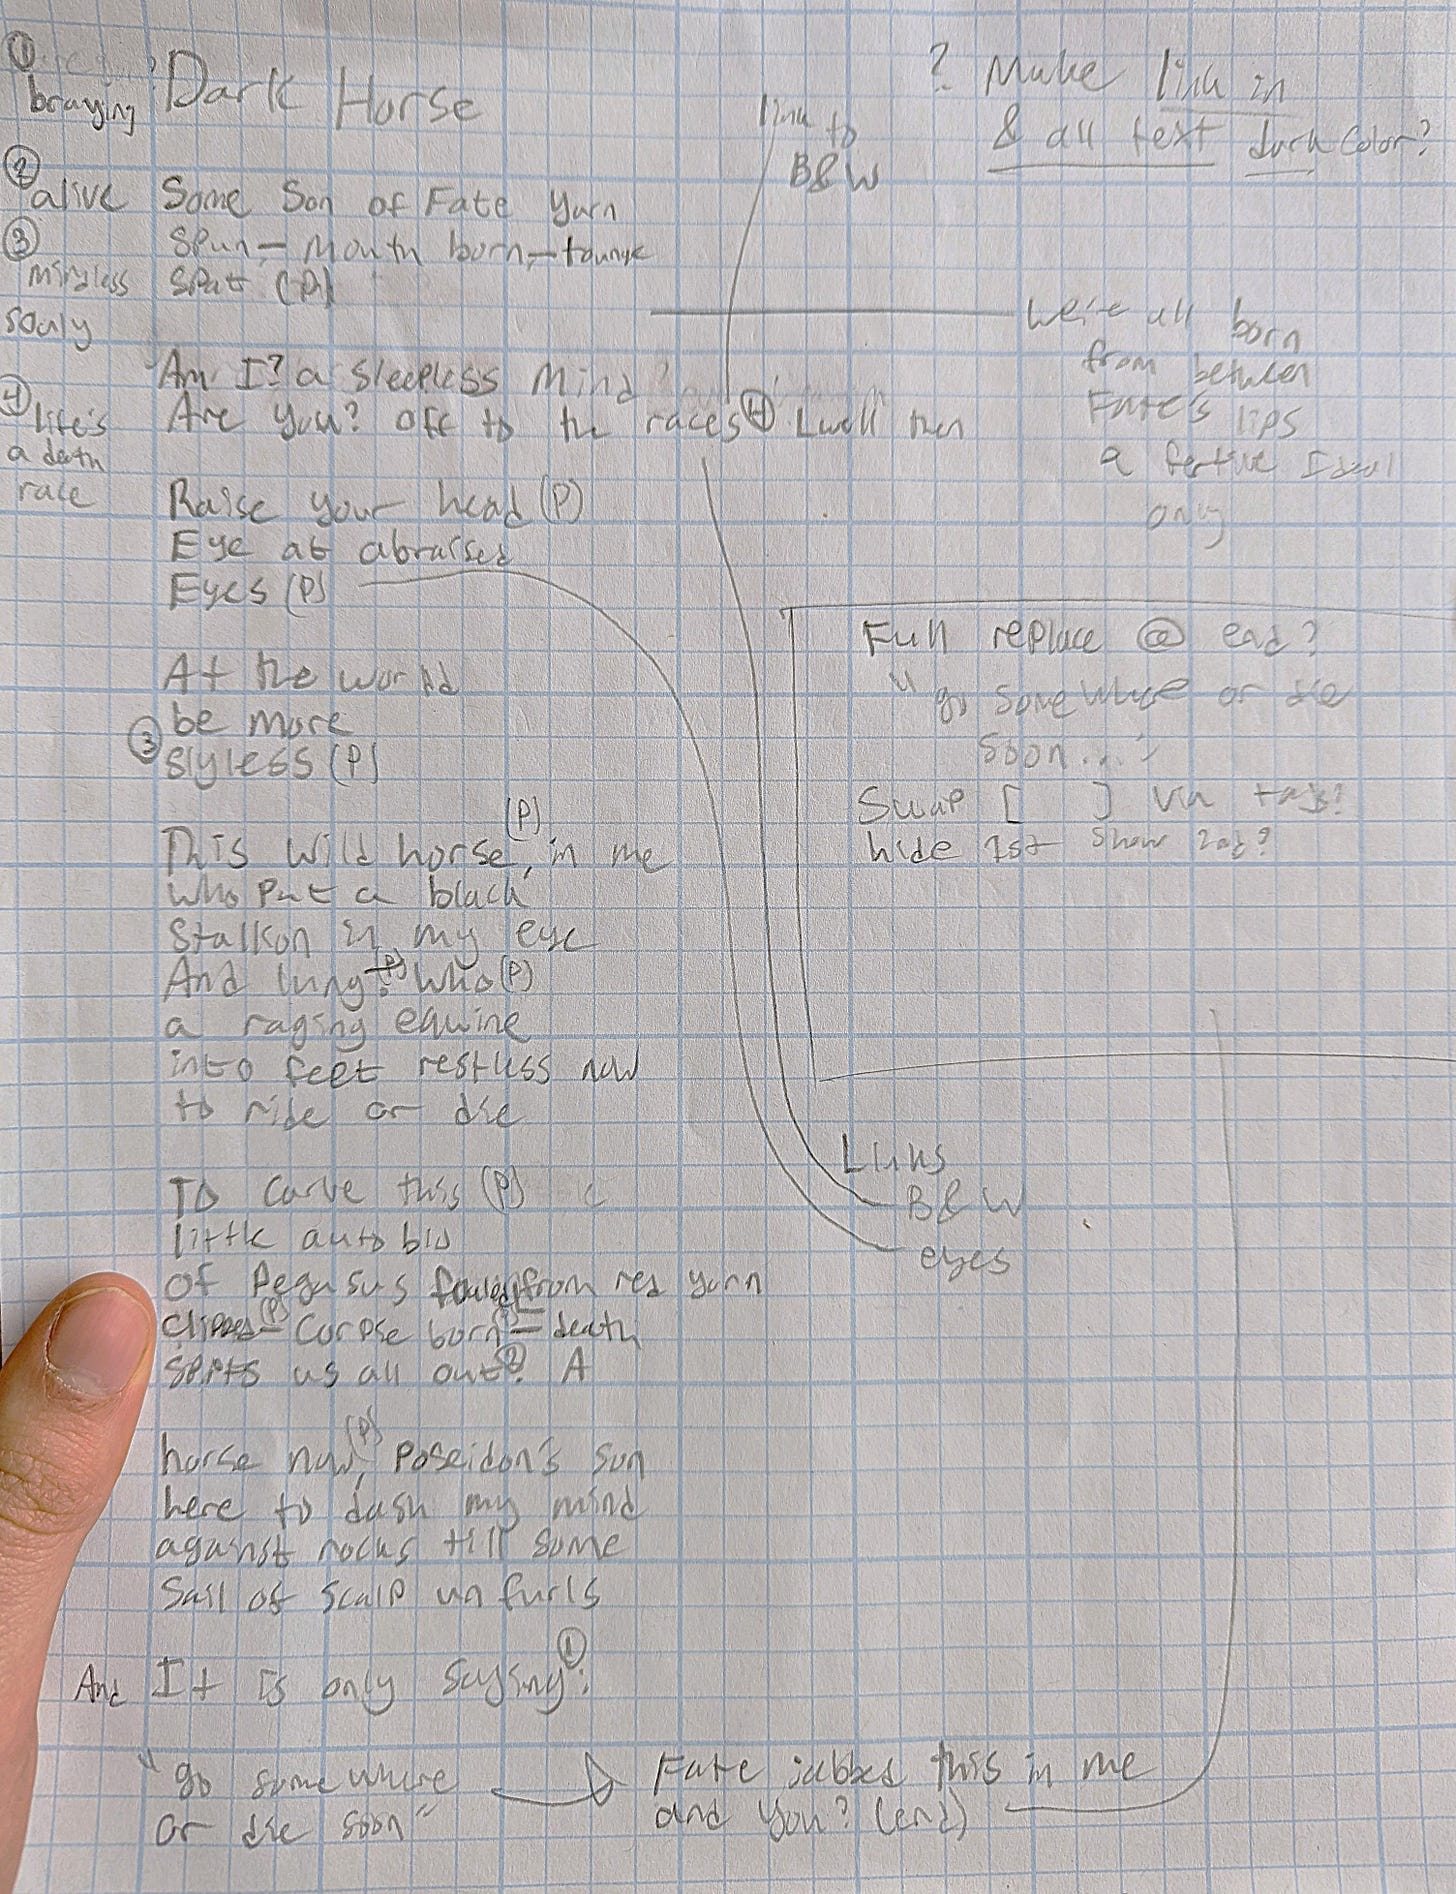 ①
braying
Dark Horse
② alive
Some Son of Fate yarn
③
Spun, – mouth born, – tounge
Spat (P)
souly
Am I? a sleepless mind
④ life's
a death
race
Are you? off to the races④ Lwell then
Raise your head (P)
Eye at abraised
Eyes (P)
At the world
be more
③ Slyless (P)
This wild horse, (P) in me
who put a black
Stalkon in my eye
And lung? (P) Who (P)
a raging equine
into feet restless now
to ride or die
To carve this (P)
little auto bio
of Pegasus from red yarn
Clipped (P) – Corpse born – death
spits us all out②? A
horse now, (P) Poseidon's sun
here to dash my mind
against rocks till some
Sail of scalp un furls
And It is only saying①:
"go some where
or die soon"
Fate jabbed this in me
and you? (end)
link to
B&W
? Make link in
& all text dark color?
We're all born
from between
Fate's lips
a Ideal
only
Full replace @ end?
"go some where or die
soon..."
Swap [ ] via tags?
hide 1st show 2nd?
Links
B&W
eyes